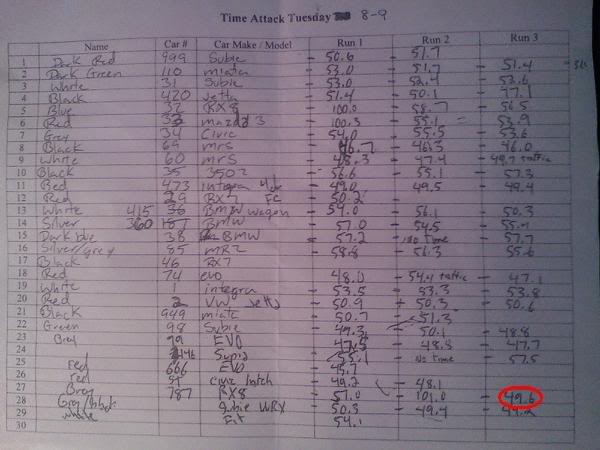 Time Attack Tuesday 8-9
Name Car # Car Make / Model Run 1 Run 2 Run 3
1 Dark Red 999 Subie - 50.6 - 51.7 - 51.4
2 Dark Green 110 miata - 53.0 - 51.7 - 53.6
3 White 31 Subie - 53.0 - 47.1
4 Black 420 Jetta - 51.4 - 50.1
5 Blue 32 RX8 - 100.0 - 56.5
6 Red mazda 3 - 100.3 - 55.1 - 53.9
7 Grey 34 Civic - 54.0 - 55.5 - 53.6
8 Black 69 mrs - 46.7 - 46.3 - 46.0
9 White 60 mrs - 48.3 - 47.4 - 49.7 traffic
10 Black 35 350Z - 56.6 - 55.1 - 57.3
11 Red 473 integra - 49.0 - 49.5 - 49.4
12 Red 29 RX7 FC - 50.2
13 White 415 BMW wagon - 54.0 - 56.1 - 50.3
14 Silver 360 BMW - 57.0 - 54.5
15 Dark blue 38 BMW - 57.2 - No Time - 57.7
16 Silver/Grey 85 MR2 - 58.8 - 56.3 - 55.6
17 Black 46 RX7
18 Red 74 evo - 48.0 - 54.4 traffic - 47.1
19 White 1 integra - 53.5 - 53.3 - 53.8
20 Red 2 VW Jetta - 50.9 - 50.3 - 50.6
21 Black 949 miata - 50.7 - 51.3
22 Green 98 Subie - 49.3 - 50.1 - 48.8
23 Grey 99 EVO - 47.5 - 48.8 - 47.7
24 Supra - 55.1 - No Time - 57.5
25 red 666 EVO - 45.7
26 red civic hatch - 49.2 - 48.1
27 Grey 787 RX8 - 57.0 - 101.0 - 49.6
28 Grey/black Subie WRX - 50.3 - 49.4 - 49.2
29 white Fit - 54.1
30